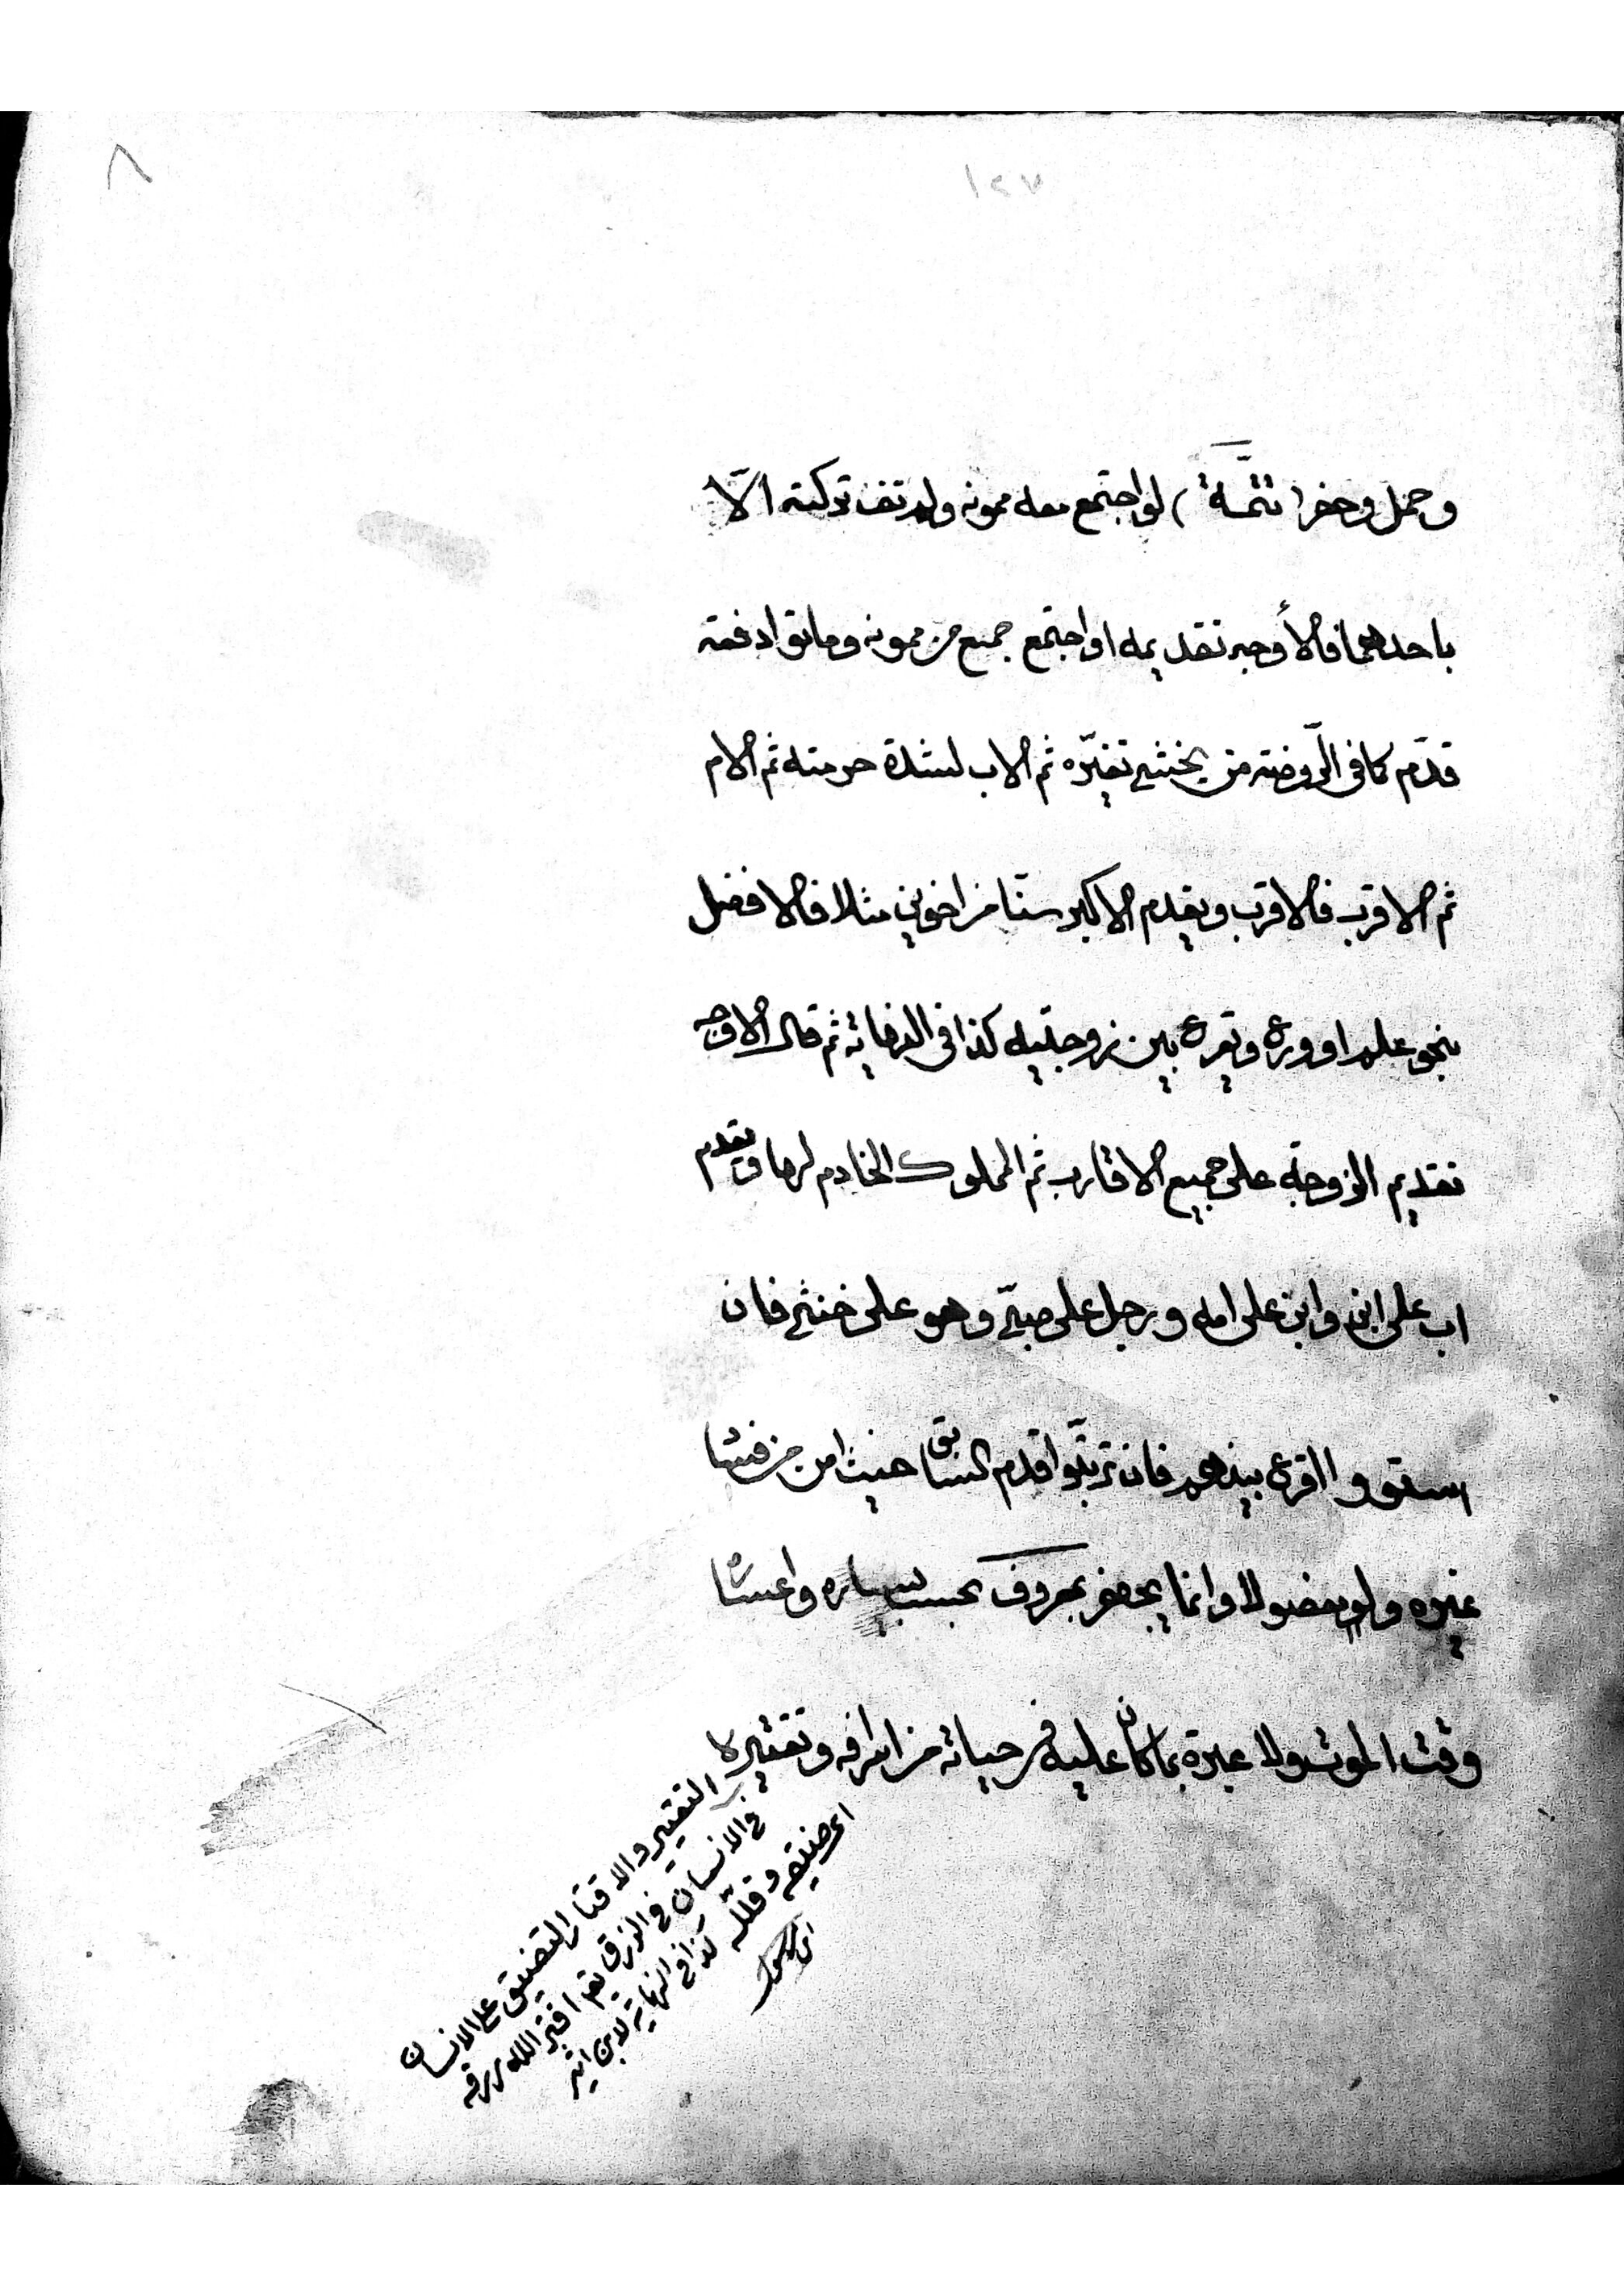 ٨
١٢٧
وحمل وحفر (تتمّة) لو اجتمع معه ممونه ولم تف تركته الّا
باحدهما فالأوجه تقديمه او اجتمع جمع من ممونه وماتوا دفعة
قدّم كما فى الرّوضة من يخشى تغيّره ثم الاب لشدة حرمته ثم الام
ثم الاقرب فالاقرب ويقدم الاكبر سنّا من اخوين مثلا فالافضل
بنحو علم او ورع ويقرع بين زوجتيه كذا فى النهاية ثم قال الاوجه
تقديم الزوجة على جميع الاقارب ثم المملوك الخادم لها ويقدم
اب على ابن وابن على امه ورجل على صبيّ وهو على خنثى فان
استووا اقرع بينهم فان ترتّبوا قدم السابق حيث امن من فساد
غيره ولو مفضولا وانما يجهز بمعروف بحسب يساره واعساره
وقت الموت ولا عبرة بما كان عليه فى حياته من اسرافه وتقتيره
التقتير والاقتار التضييق على الانسان
فى الانسان فى الرزق يقم اقتر الله رزقه
اى ضيقه وقلّله كذا فى النهاية لابن اثير